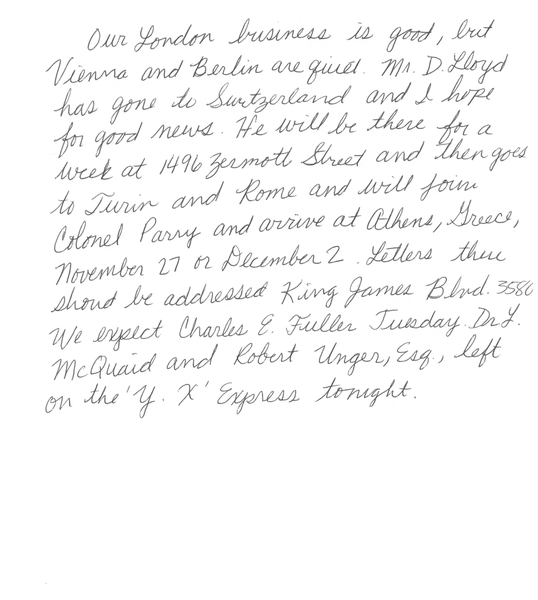 Our London business is good, but
Vienna and Berlin are quiet. Mr. D. Lloyd
has gone to Switzerland and I hope
for good news. He will be there for a
week at 1496 Zermott Street and then goes
to Turin and Rome and will join
Colonel Parry and arrive at Athens, Greece,
November 27 or December 2. Letters there
should be addressed King James Blvd. 3580
We expect Charles E. Fuller Tuesday. Dr. L.
McQuaid and Robert Unger, Esq., left
on the 'Y. X' Express tonight.